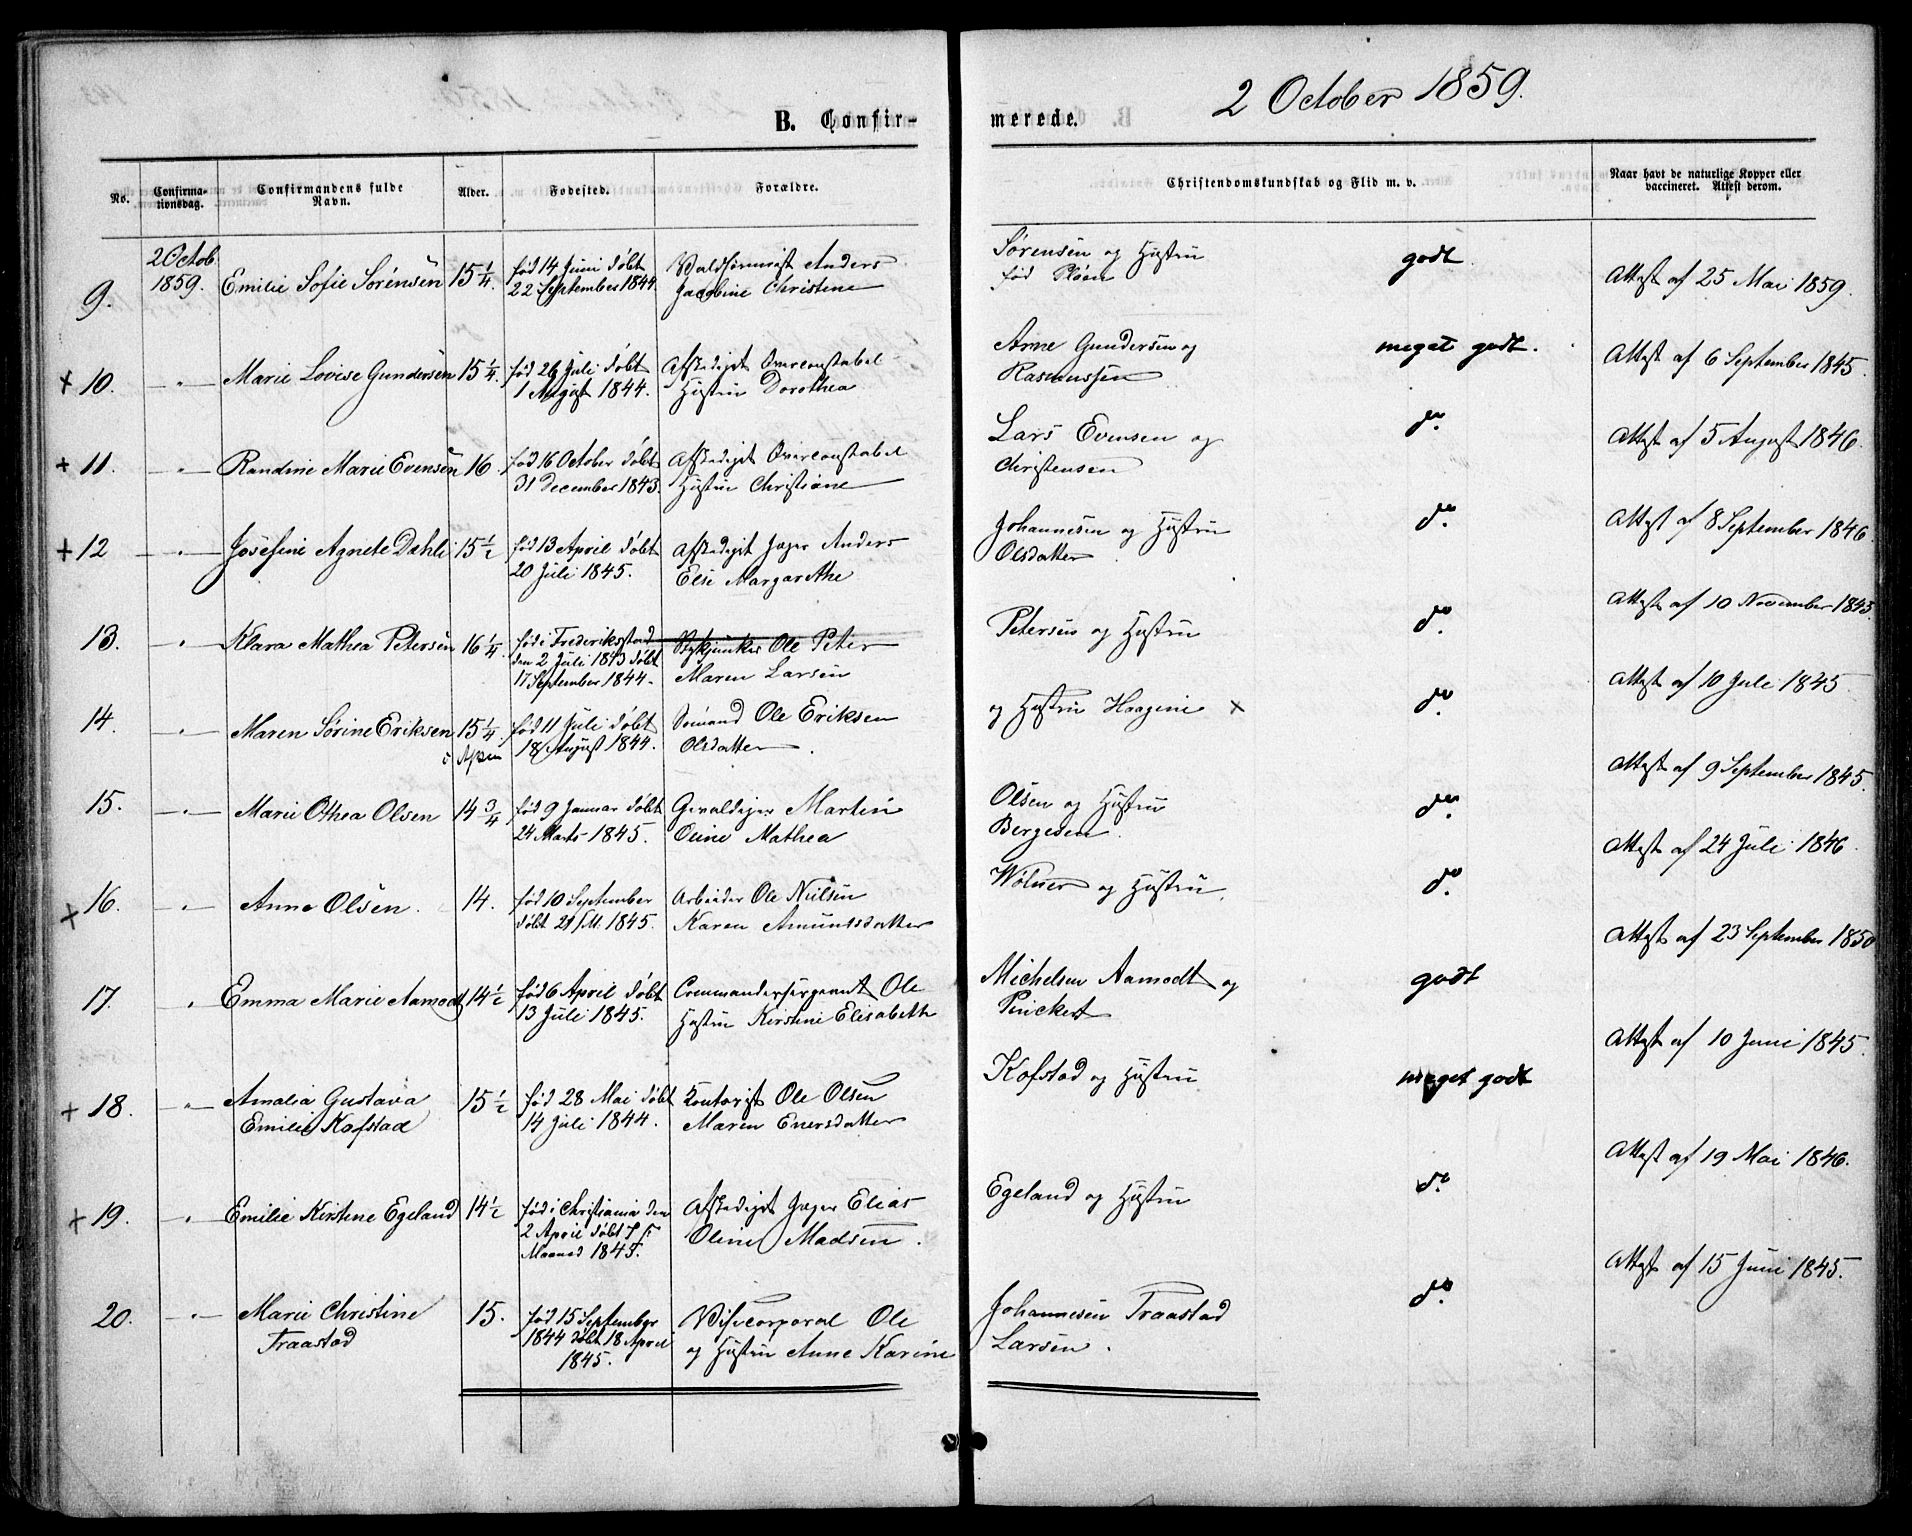 2 October 1859.
B. Confirmerede.
No.
Confirmationsdag.
Confirmandens fulde Navn.
Alder.
Fødested.
Forældre.
Christendomskundskab og Flid m. v.
Naar havt de naturlige Kopper eller vaccineret. Attest derom.
9. 2 Octob. 1859. Emilie Sofie Sørensen 15 1/4.
født 14 Juni døbt
22 September 1844.
Anders Sørensen og Hustru
Jacobine Christine født
godt.
Attest af 25 Mai 1859.
+ 10. — " — Marie Lovise Gundersen 15 1/4.
født 26 Juli døbt
1 August 1844.
Afskediget Overconstabel Arne Gundersen og
Hustru Dorothea Rasmussen
meget godt.
Attest af 6 September 1845.
+ 11. — " — Randine Marie Evensen 16.
født 16 October døbt
31 December 1843.
Afskediget Overconstabel Lars Evensen og
Hustru Christiane Christensen
do.
Attest af 5 August 1846.
+ 12 — " — Josefine Agnete Dæhli 15 1/2
født 13 April døbt
20 Juli 1845.
Afskediget Jæger Anders Johannesen og Hustru
Else Margarethe Olsdatter
do.
Attest af 8 September 1846
13. — " — Klara Mathea Petersen 16 1/4.
født i Frederiksstad
den 2 Juli 1843 døbt
17 September 1844.
Stykjunker Ole Peter Petersen og Hustru
Maren Larsen
do.
Attest af 10 November 1843.
14. — " — Maren Sørine Eriksen 15 1/4.
født 11 Juli døbt
18 August 1844.
Sømand Ole Eriksen og Hustru Haagine x
Olsdatter.
do.
Attest af 10 Juli 1845
15. — " — Marie Othea Olsen 14 3/4
født 9 Januar døbt
24 Marts 1845.
Gevaldiger Martin Olsen og Hustru
Oline Mathea Bergesen.
do.
Attest af 9 September 1845.
x 16. — " — Anne Olsen. 14.
født 10 September
døbt 21 f.M. 1845.
Arbeider Ole Nielsen og Hustru
Karen Amundsdatter
do.
Attest af 24 Juli 1846.
17. " Emma Marie Aamodt 14 1/2
født 6 April døbt
13 Juli 1845.
Commandersergeant Ole Michelsen Aamodt og
Hustru Kirstine Elisabeth Pinckert
godt
Attest af 23 September 1850
+ 18. — " — Amalia Gustava
Emilie Kofstad
15 1/2
født 28 Mai døbt
14 Juli 1844.
Kontorist Ole Olsen Kofstad og Hustru
Maren Enersdatter
meget godt
Attest af 10 Juni 1845.
+ 19. — " — Emilie Kirstine Egeland 14 1/2
født i Christiania den
2 April døbt
Maaned 1845.
Afskediget Jæger Elias Egeland og Hustru
Oline Madsen.
do.
Attest af 19 Mai 1846.
20. — " — Marie Christine
Traastad
15.
født 15 September
1844 døbt 18 April
1845.
Vicecorporal Ole Johannesen Traastad
og Hustru Anne Karine Larsen.
do.
Attest af 15 Juni 1845.